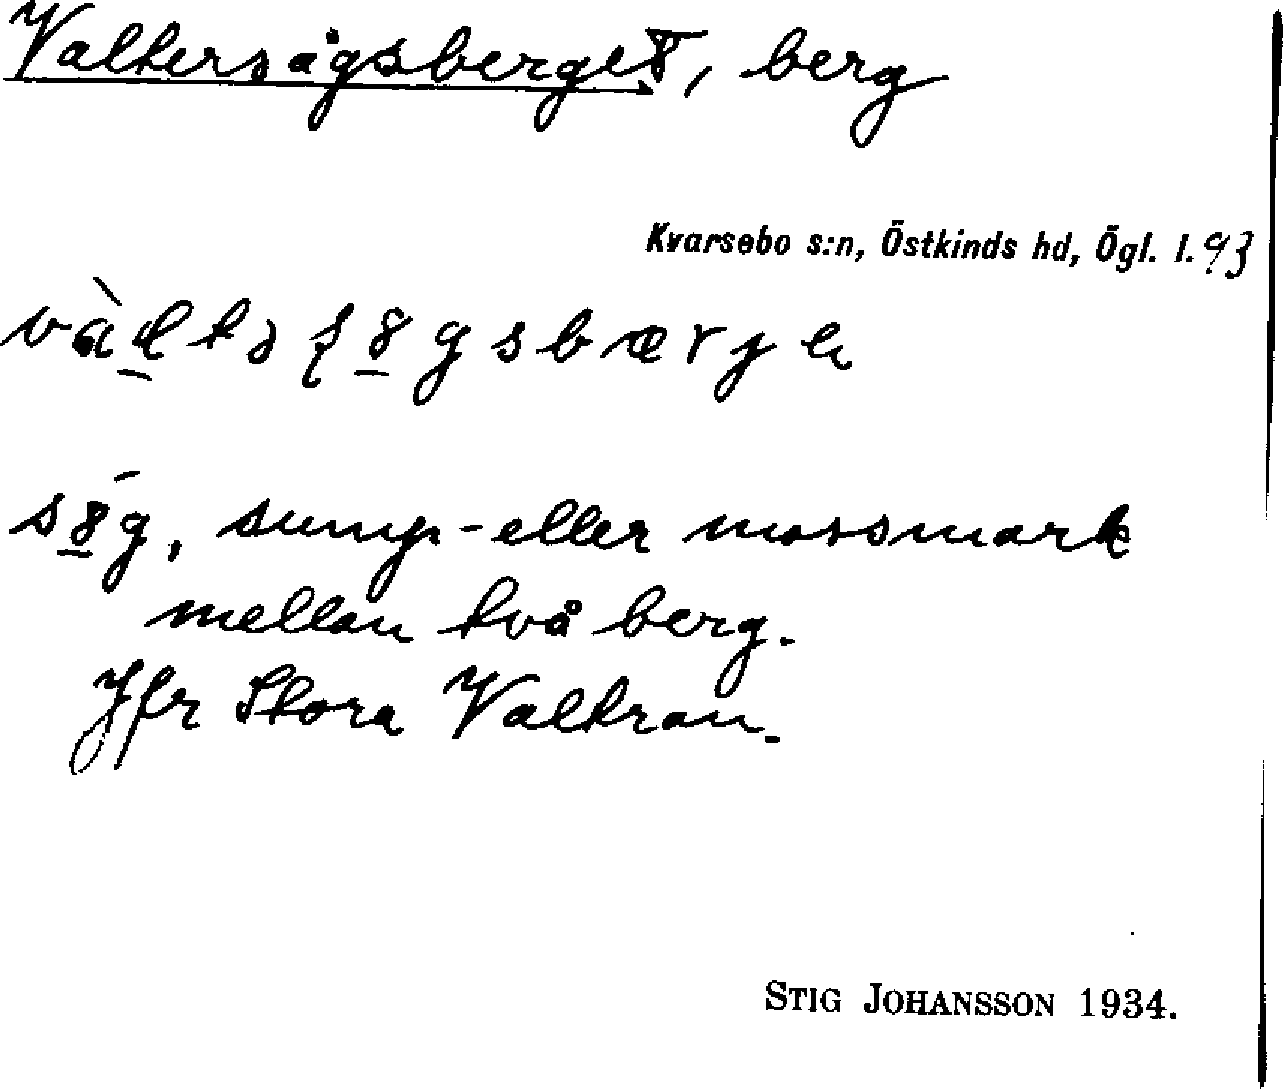 Valtersågsberget, berg
Kvarsebo s:n, Östkinds hd, Ögl. l. 93
sump- eller mossmark
mellan två berg.
Jfr Stora Valtran.
STIG JOHANSSON 1934.